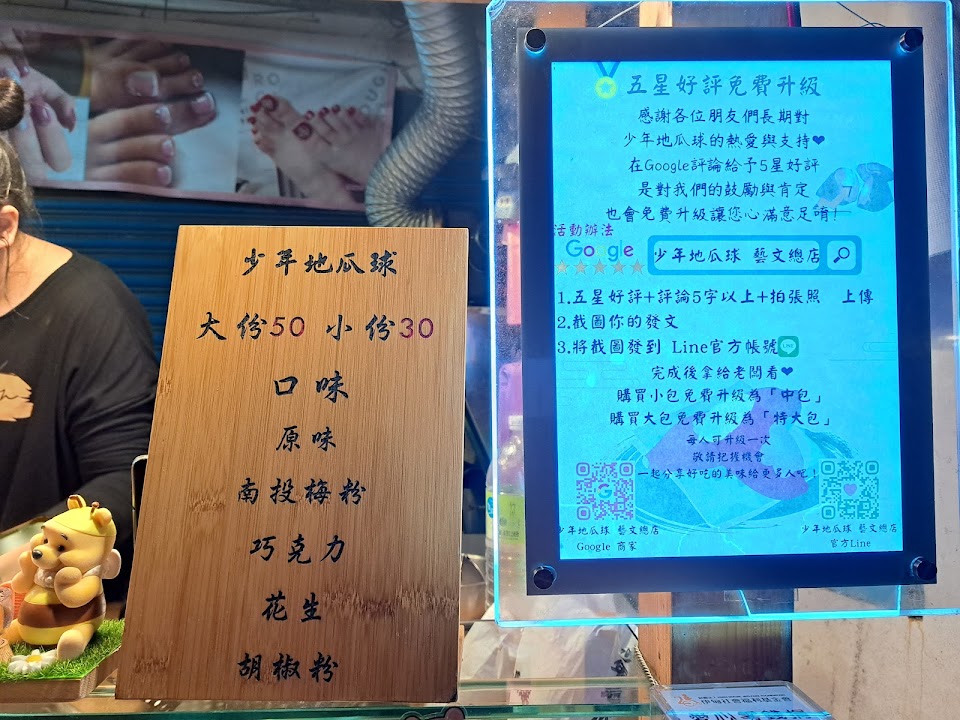 少年地瓜球
大份50 小份30
口味
原味
南投梅粉
巧克力
花生
胡椒粉
五星好評免費升級
感謝各位朋友們長期對
少年地瓜球的熱愛與支持❤
在Google評論給予5星好評
是對我們的鼓勵與肯定
也會免費升級讓您心滿意足唷!
活動辦法
Google
少年地瓜球 藝文總店
1.五星好評+評論5字以上+拍張照 上傳
2.截圖你的發文
3.將截圖發到 Line官方帳號
LINE
完成後拿給老闆看❤
購買小包免費升級為「中包」
購買大包免費升級為「特大包」
每人可升級一次
敬請把握機會
一起分享好吃的美味給更多人吧!
少年地瓜球 藝文總店
Google 商家
少年地瓜球 藝文總店
官方Line